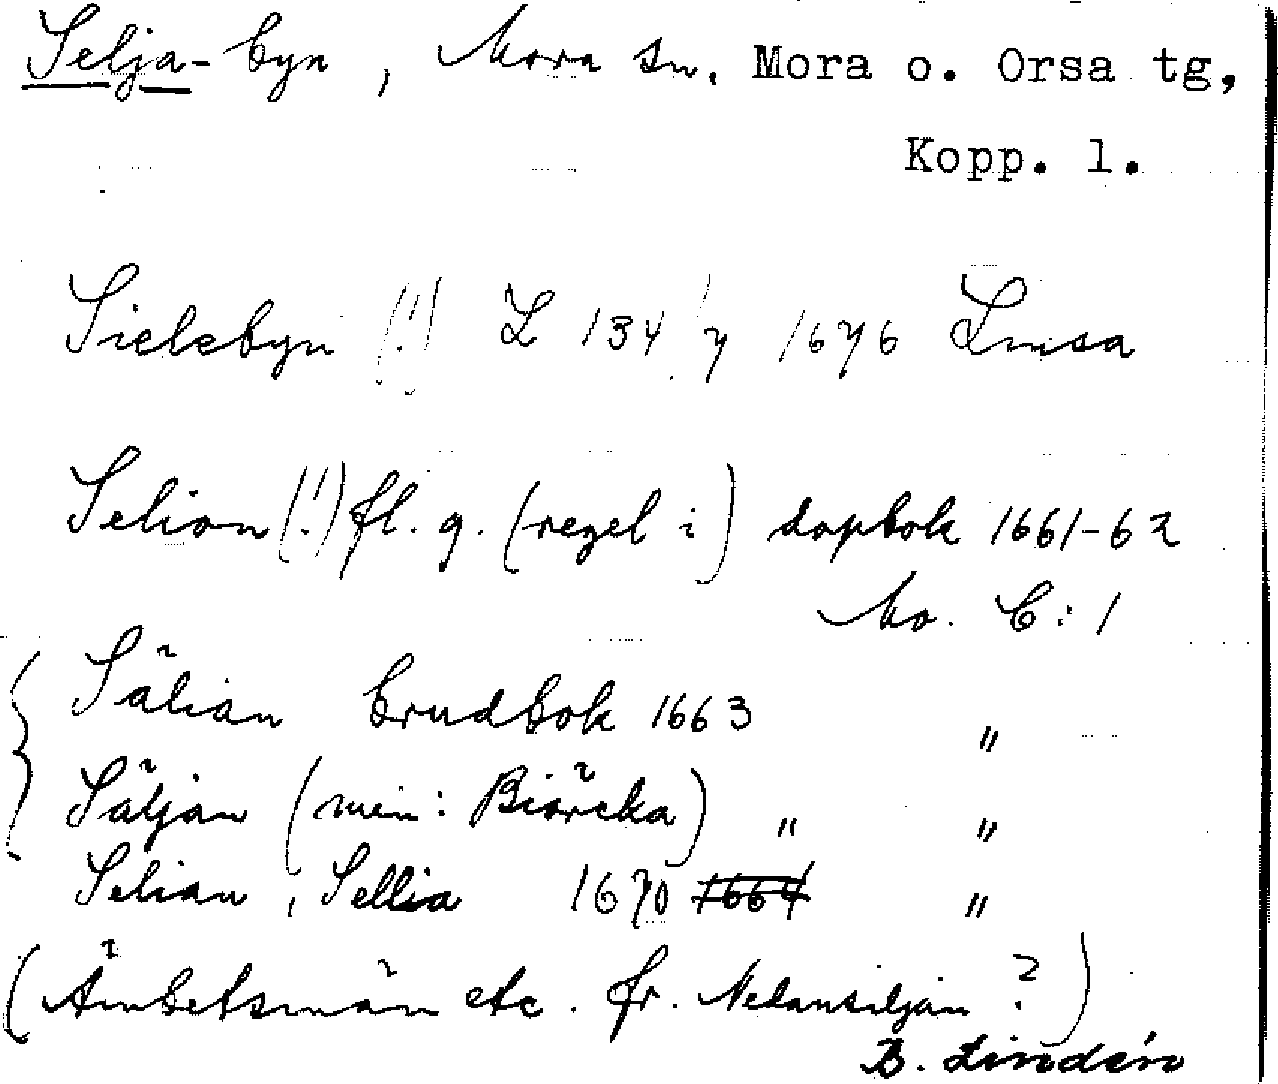 Selja-byn, Mora sn. Mora o. Orsa tg,
Kopp. l.
Sielebyn (!) L 134 y 1676 Lmsa
Selion (!) fl. g. (regel i) dopbok 1661-62
Mo. C:1
Sälian brudbok 1663 "
Säljan (min: Biörcka) " "
Selian, Sellia 1670 1664 "
(Ämbetsmän etc. fr. Nedansiljan ?)
B. Lindén